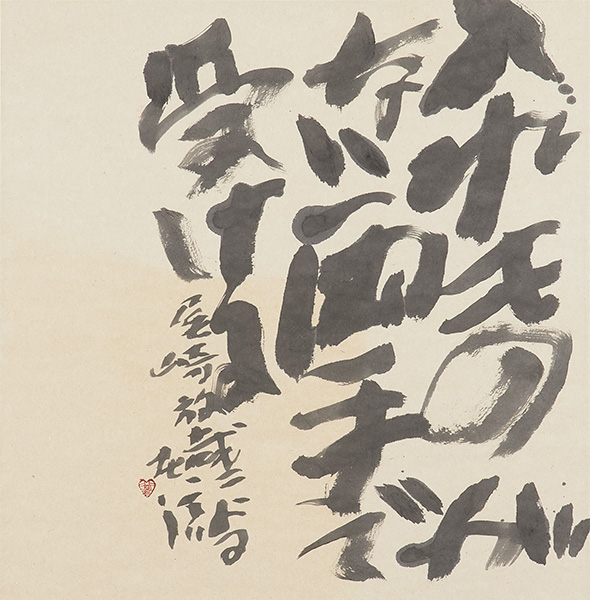 入れものが
ない両手で
受ける
尾崎放哉